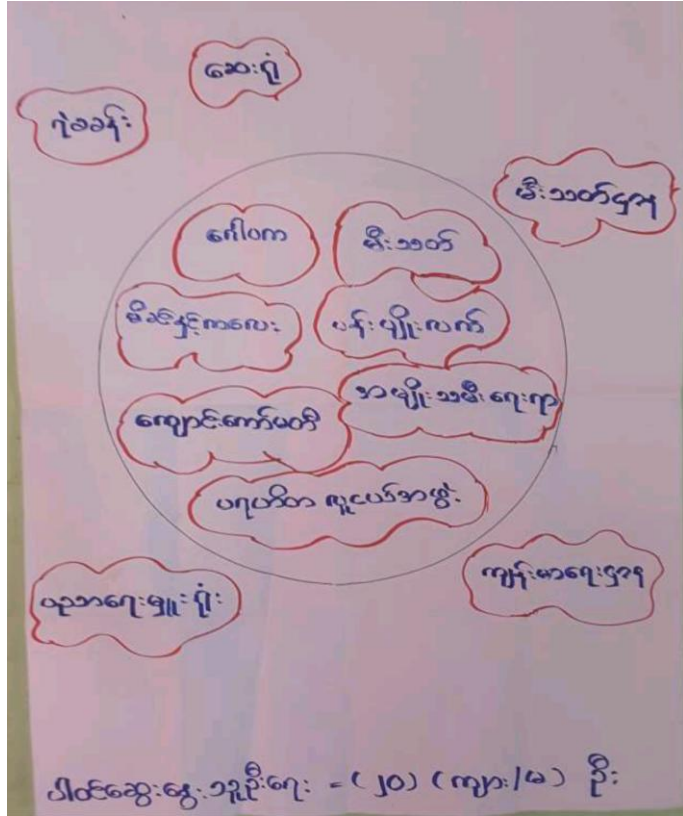 ဆေးရုံ
ရဲစခန်း
မီးသတ်ဌာန
ဂေါပက
မီးသတ်
မိခင်နှင့်ကလေး
ပန်းပျိုးလက်
အမျိုးသမီးရေးရာ
ကျောင်းကော်မတီ
ပရဟိတ လူငယ်အဖွဲ့
ကျန်းမာရေးဌာန
ပညာရေးမှူးရုံး
ပါဝင်ဆွေးနွေးသူဦးရေ = (၂၀) (ကျား/မ) ဦး